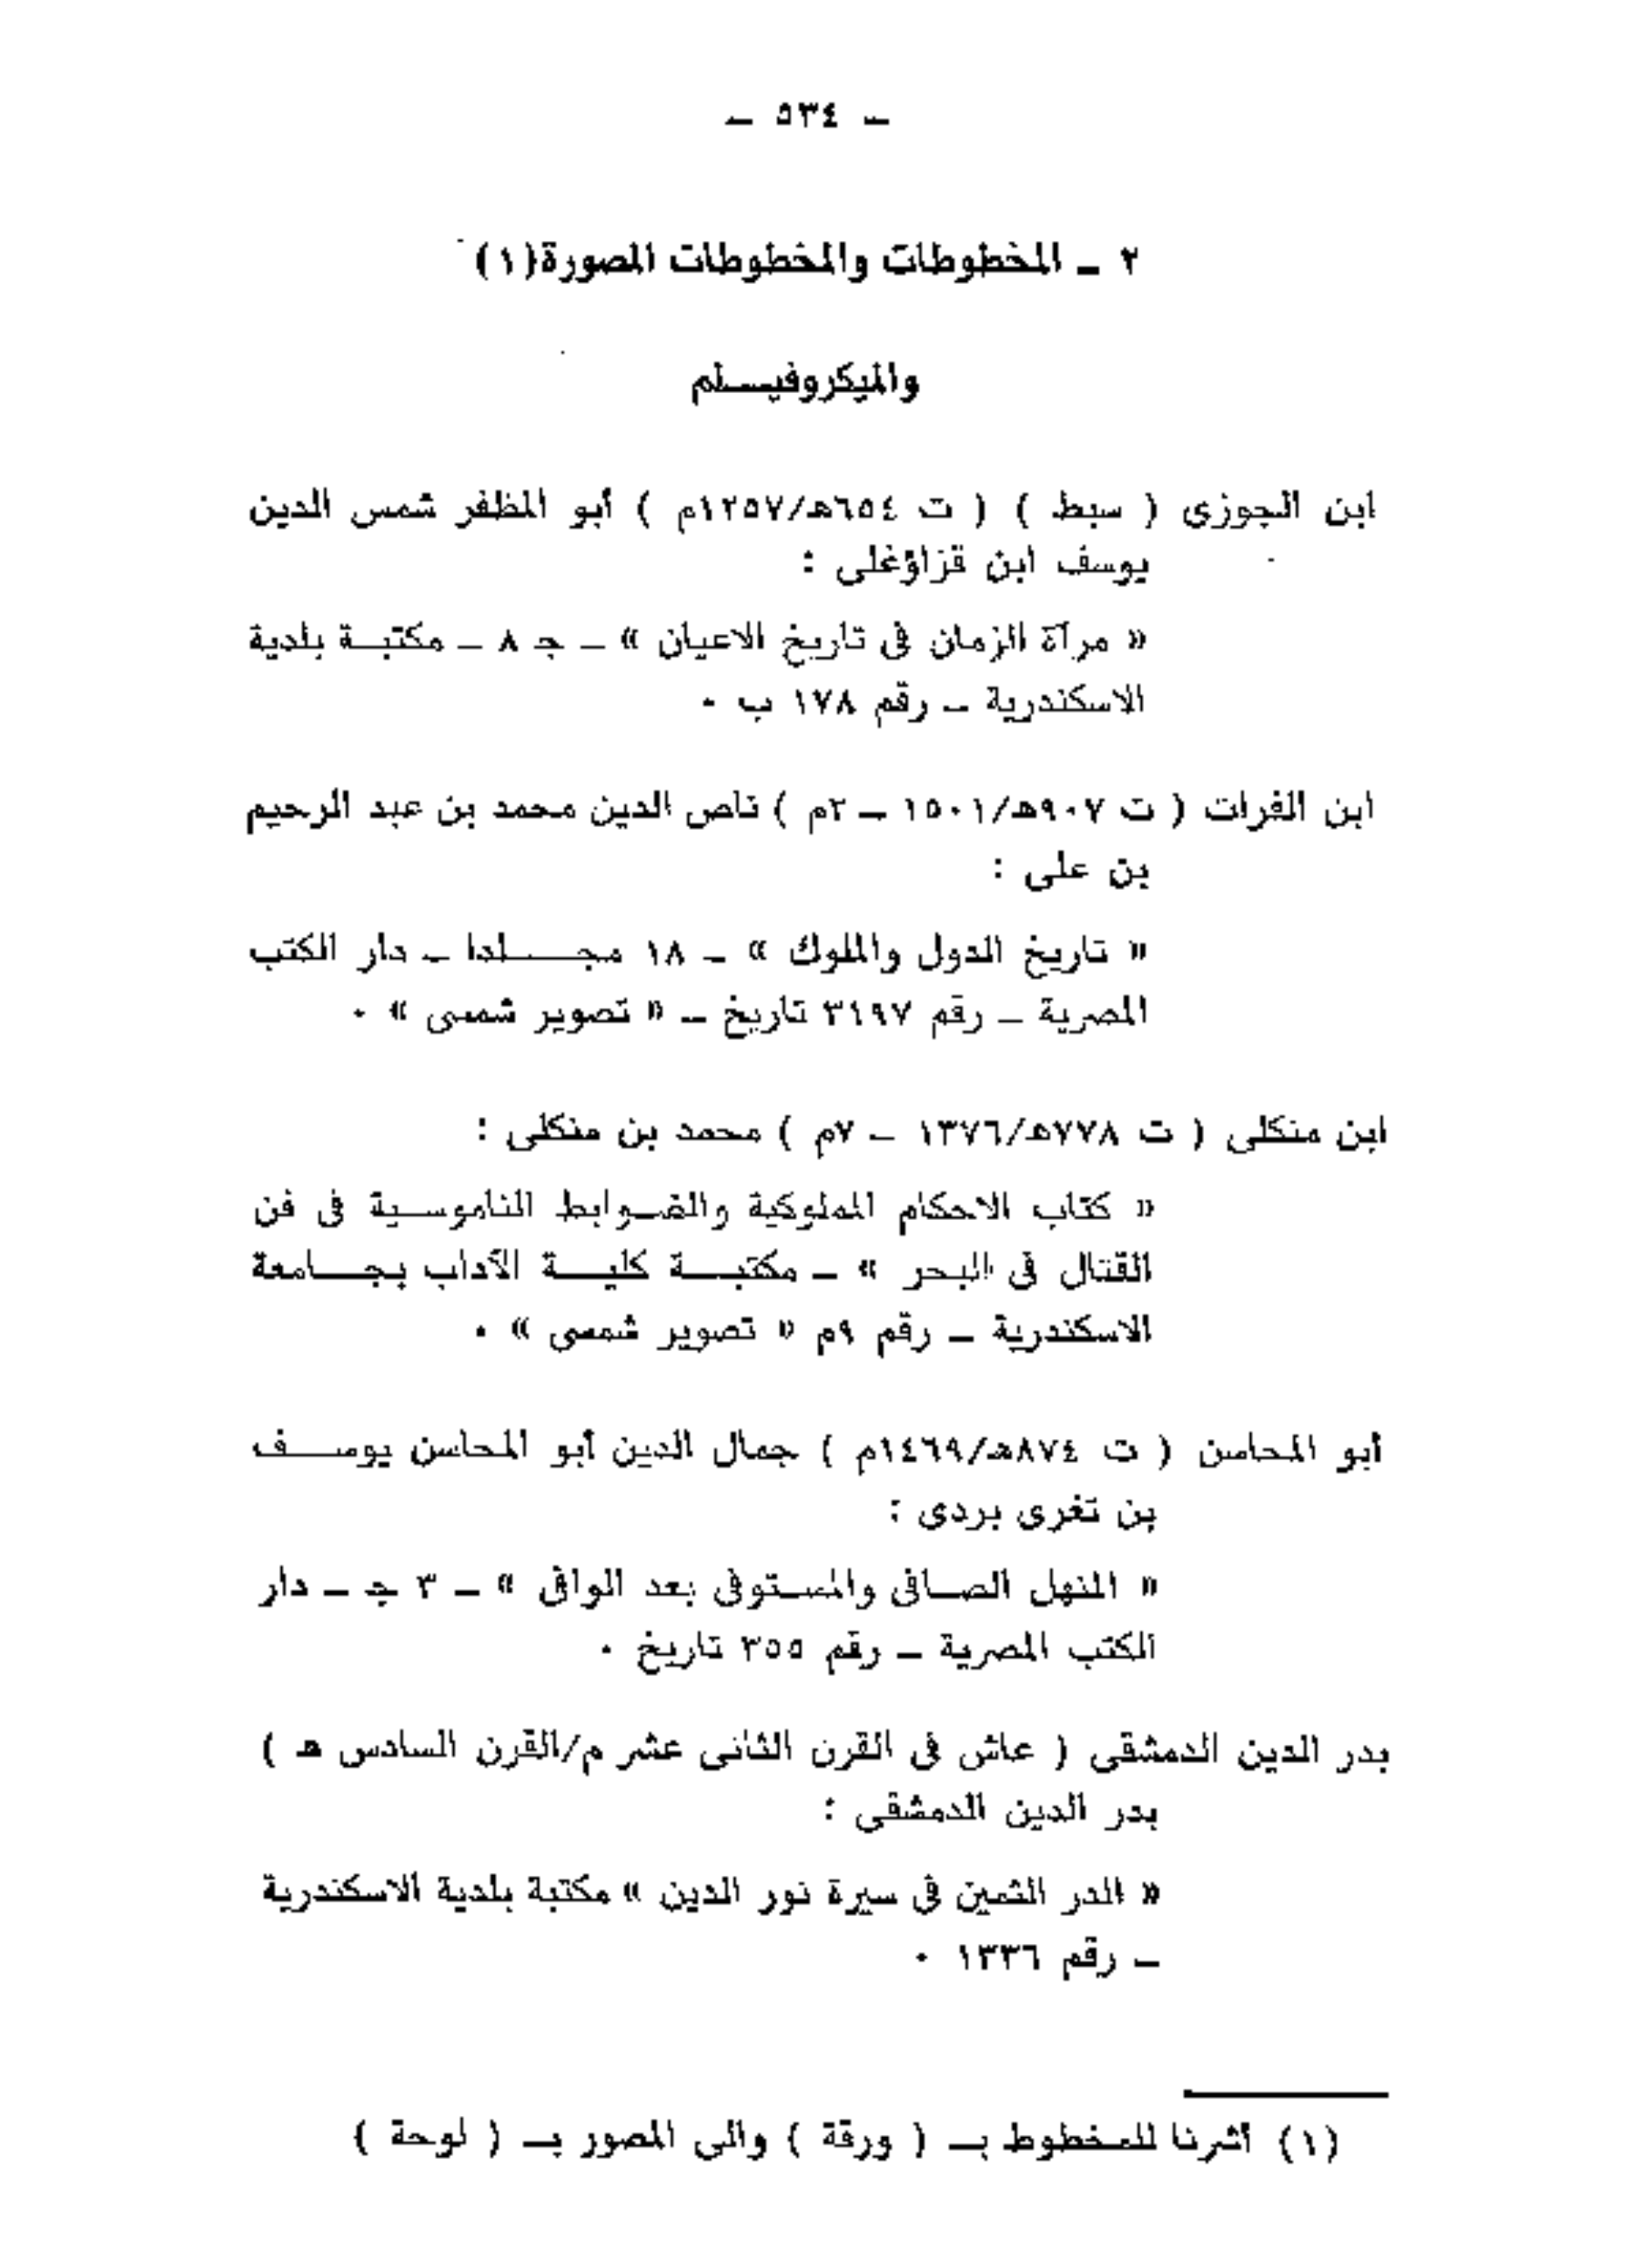 — ٥٣٤ —
٢ — المخطوطات والمخطوطات المصورة(١)
والميكروفيسلم
ابن الجوزى ( سبط ) ( ت ٦٥٤هـ/١٢٥٧م ) أبو المظفر شمس الدين
يوسف ابن قزاؤغلى :
« مرآة الزمان فى تاريخ الاعيان » — جـ ٨ — مكتبة بلدية
الاسكندرية — رقم ١٧٨ ب ٠
ابن الفرات ( ت ٩٠٧هـ/١٥٠١ — ٢م ) ناص الدين محمد بن عبد الرحيم
بن على :
« تاريخ الدول والملوك » — ١٨ مجلدا — دار الكتب
المصرية — رقم ٣١٩٧ تاريخ — « تصوير شمسى » ٠
ابن منكلى ( ت ٧٧٨هـ/١٣٧٦ — ٧م ) محمد بن منكلى :
« كتاب الاحكام الملوكية والضوابط الناموسية فى فن
القتال فى البحر » — مكتبة كلية الآداب بجامعة
الاسكندرية — رقم ٩م « تصوير شمسى » ٠
أبو المحاسن ( ت ٨٧٤هـ/١٤٦٩م ) جمال الدين أبو المحاسن يوسف
بن تغرى بردى :
« المنهل الصافى والمستوفى بعد الوافى » — ٣ جـ — دار
الكتب المصرية — رقم ٣٥٥ تاريخ ٠
بدر الدين الدمشقى ( عاش فى القرن الثانى عشر م/القرن السادس هـ )
بدر الدين الدمشقى :
« الدر الثمين فى سيرة نور الدين » مكتبة بلدية الاسكندرية
— رقم ١٣٣٦ ٠
(١) أشرنا للمخطوط بـ ( ورقة ) والى المصور بـ ( لوحة )